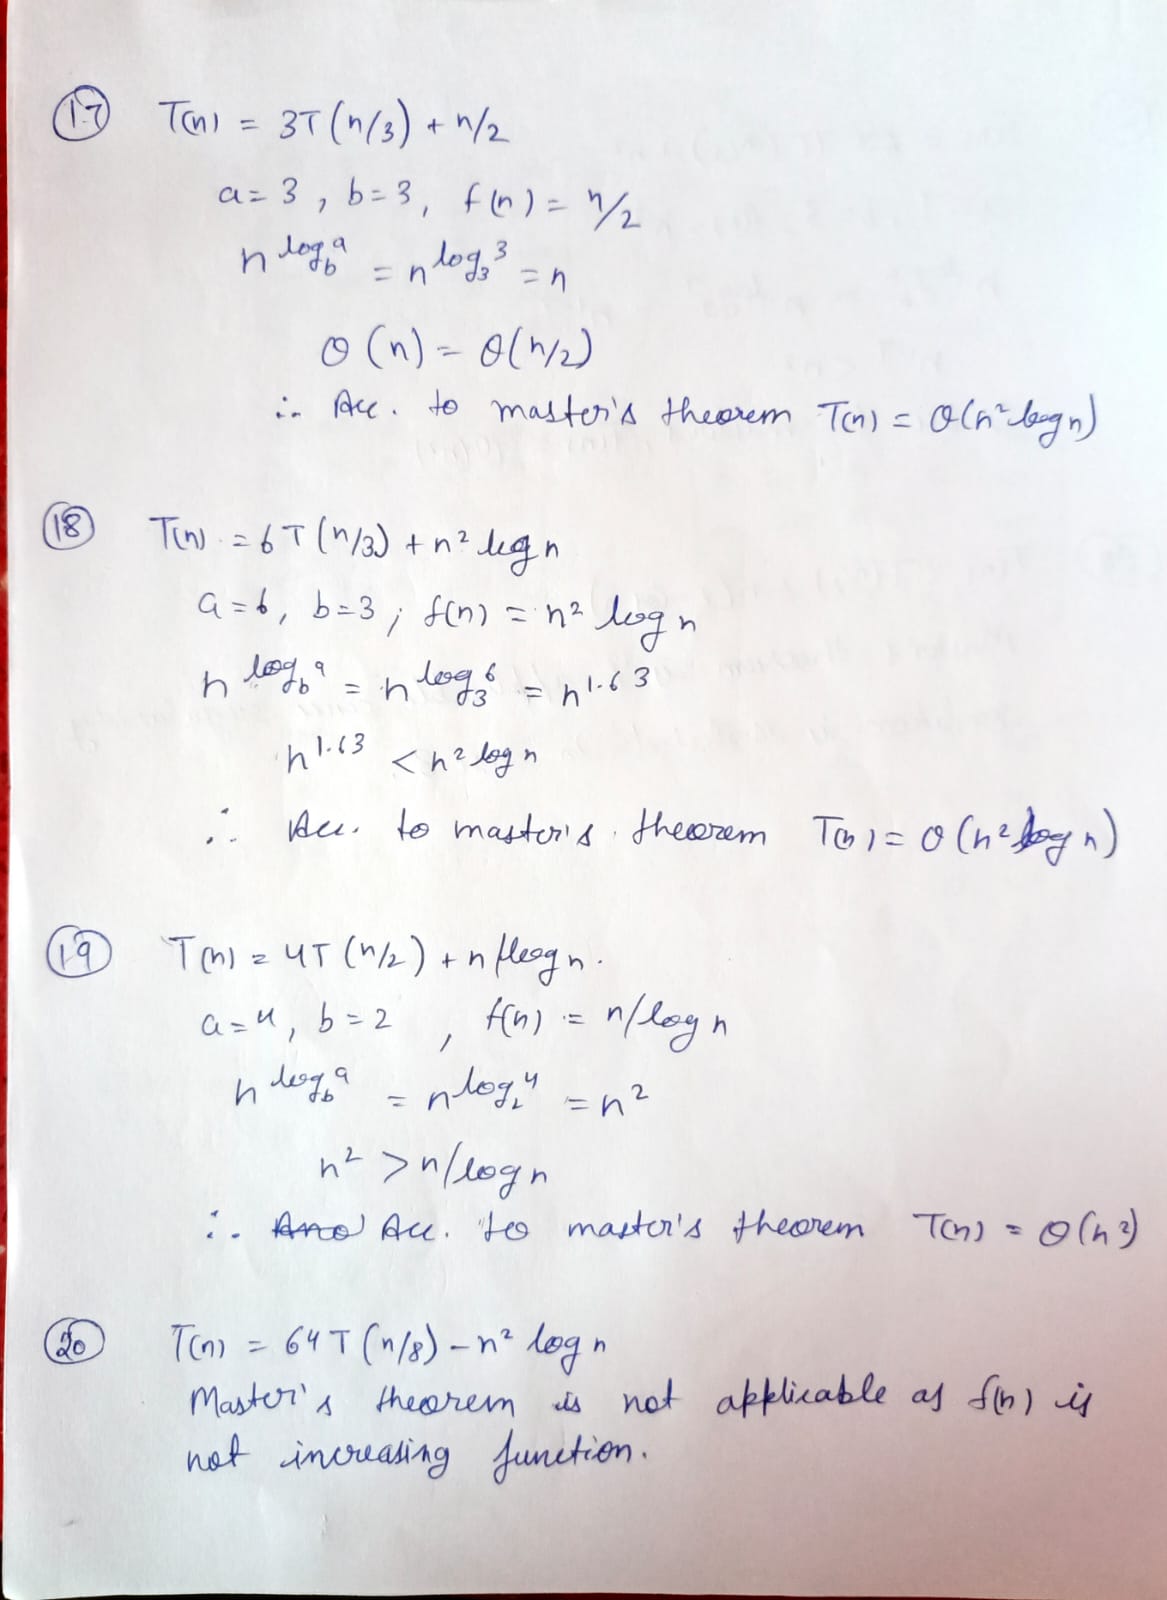 17 T(n) = 3T(n/3) + n/2
a=3, b=3, f(n) = n/2
n^log_b a = n^log_3 3 = n
θ(n) = θ(n/2)
∴ Acc. to master's theorem T(n) = θ(n² log n)
18 T(n) = 6T(n/3) + n² log n
a=6, b=3; f(n) = n² log n
n^log_b a = n^log_3 6 = n^1.63
n^1.63 < n² log n
∴ Acc. to master's theorem T(n) = θ(n² log n)
19 T(n) = 4T(n/2) + n/log n.
a=4, b=2, f(n) = n/log n
n^log_b a = n^log_2 4 = n²
n² > n/log n
∴ Acc. to master's theorem T(n) = θ(n²)
20 T(n) = 64T(n/8) - n² log n
Master's theorem is not applicable as f(n) is
not increasing function.